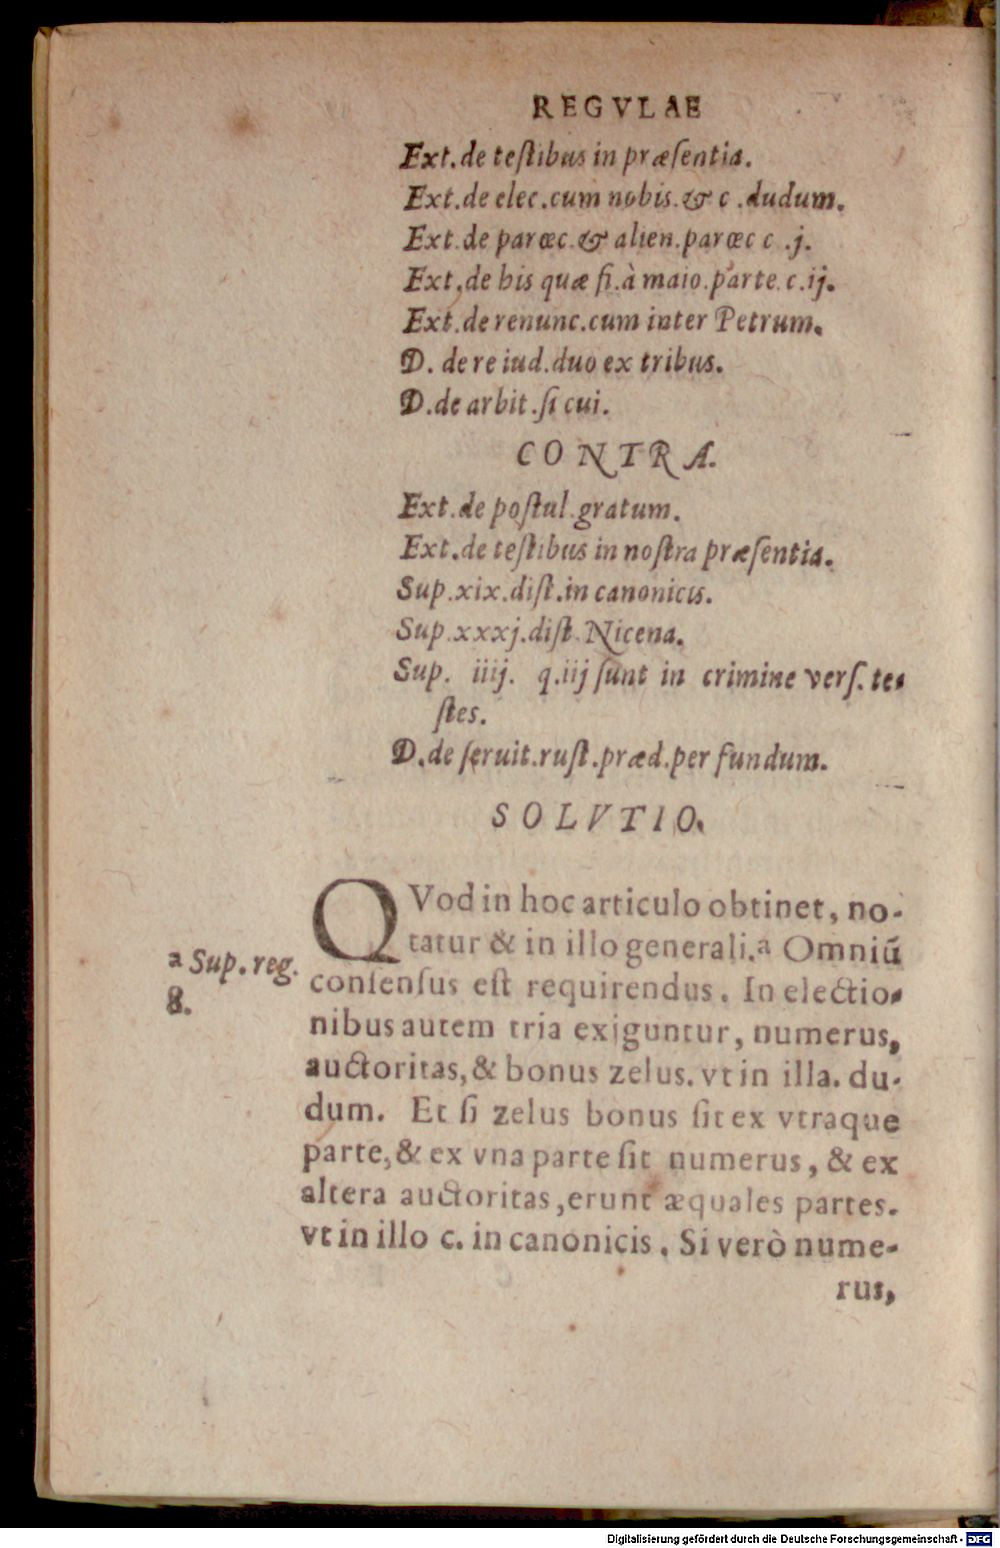 REGVLAE
Ext. de teſtibus in præſentia.
Ext. de elec. cum nobis. & c. dudum.
Ext. de parœc. & alien. parœc c .j.
Ext. de his quæ fi. à maio. parte. c. ij.
Ext. de renunc. cum inter Petrum.
D. de re iud. duo ex tribus.
D. de arbit. ſi cui.
CONTRA.
Ext. de poſtul. gratum.
Ext. de teſtibus in noſtra præſentia.
Sup. xix. diſt. in canonicis.
Sup. xxxj. diſt. Nicena.
Sup. iiij. q. iij ſunt in crimine verſ. te-
ſtes.
D. de ſeruit. ruſt. præd. per fundum.
SOLVTIO.
QVod in hoc articulo obtinet, no-
tatur & in illo generali.ª Omniũ
conſenſus eſt requirendus. In electio-
nibus autem tria exiguntur, numerus,
auctoritas, & bonus zelus. vt in illa. du-
dum. Et ſi zelus bonus ſit ex vtraque
parte, & ex vna parte ſit numerus, & ex
altera auctoritas, erunt æquales partes.
vt in illo c. in canonicis. Si verò nume-
rus,
ª Sup. reg.
8.
Digitalisierung gefördert durch die Deutsche Forschungsgemeinschaft - DFG